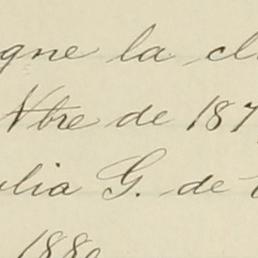 gne la
Nbre de 187
lia G. de
188